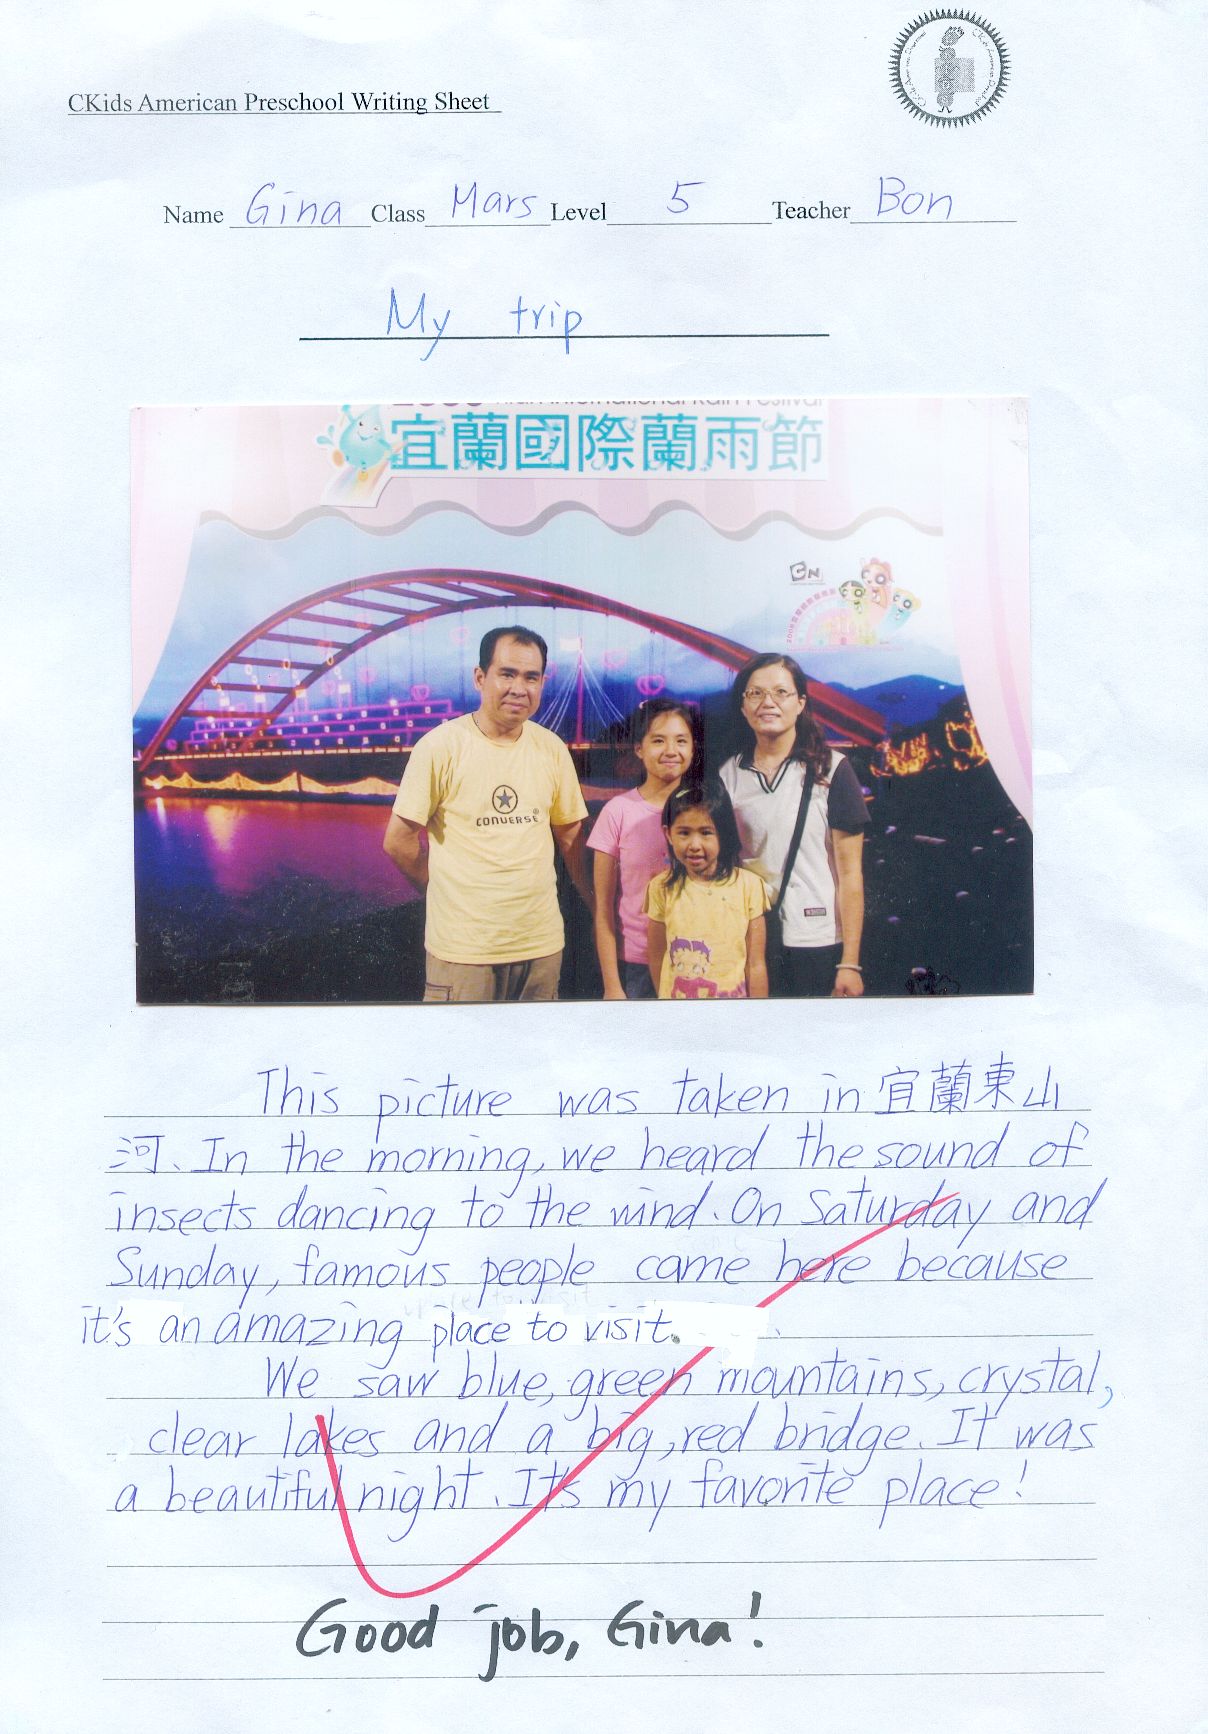 CKids American Preschool Writing Sheet
Name Gina Class Mars Level 5 Teacher Bon
My trip
International Rain Festival
宜蘭國際蘭雨節
CN
CONVERSE
This picture was taken in 宜蘭東山
河. In the morning, we heard the sound of
insects dancing to the wind. On Saturday and
Sunday, famous people came here because
it's an amazing place to visit.
We saw blue, green mountains, crystal,
clear lakes and a big, red bridge. It was
a beautiful night. It's my favorite place!
Good job, Gina!